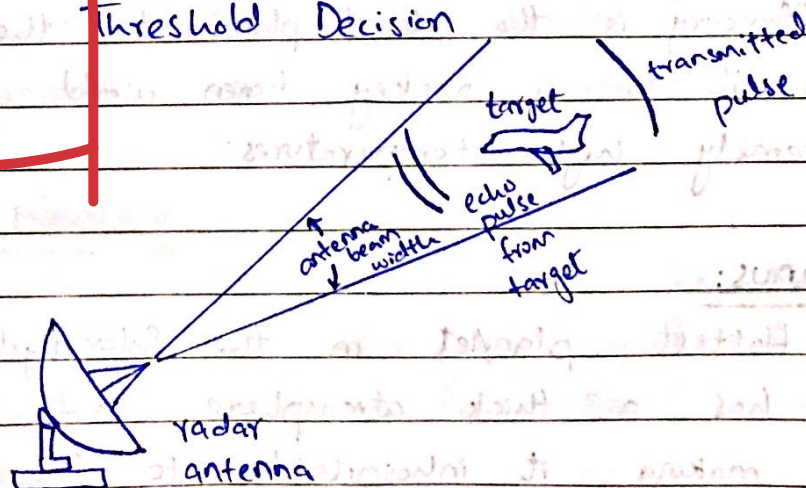 Threshold Decision
transmitted
pulse
target
echo
pulse
from
target
antenna
beam
width
radar
antenna